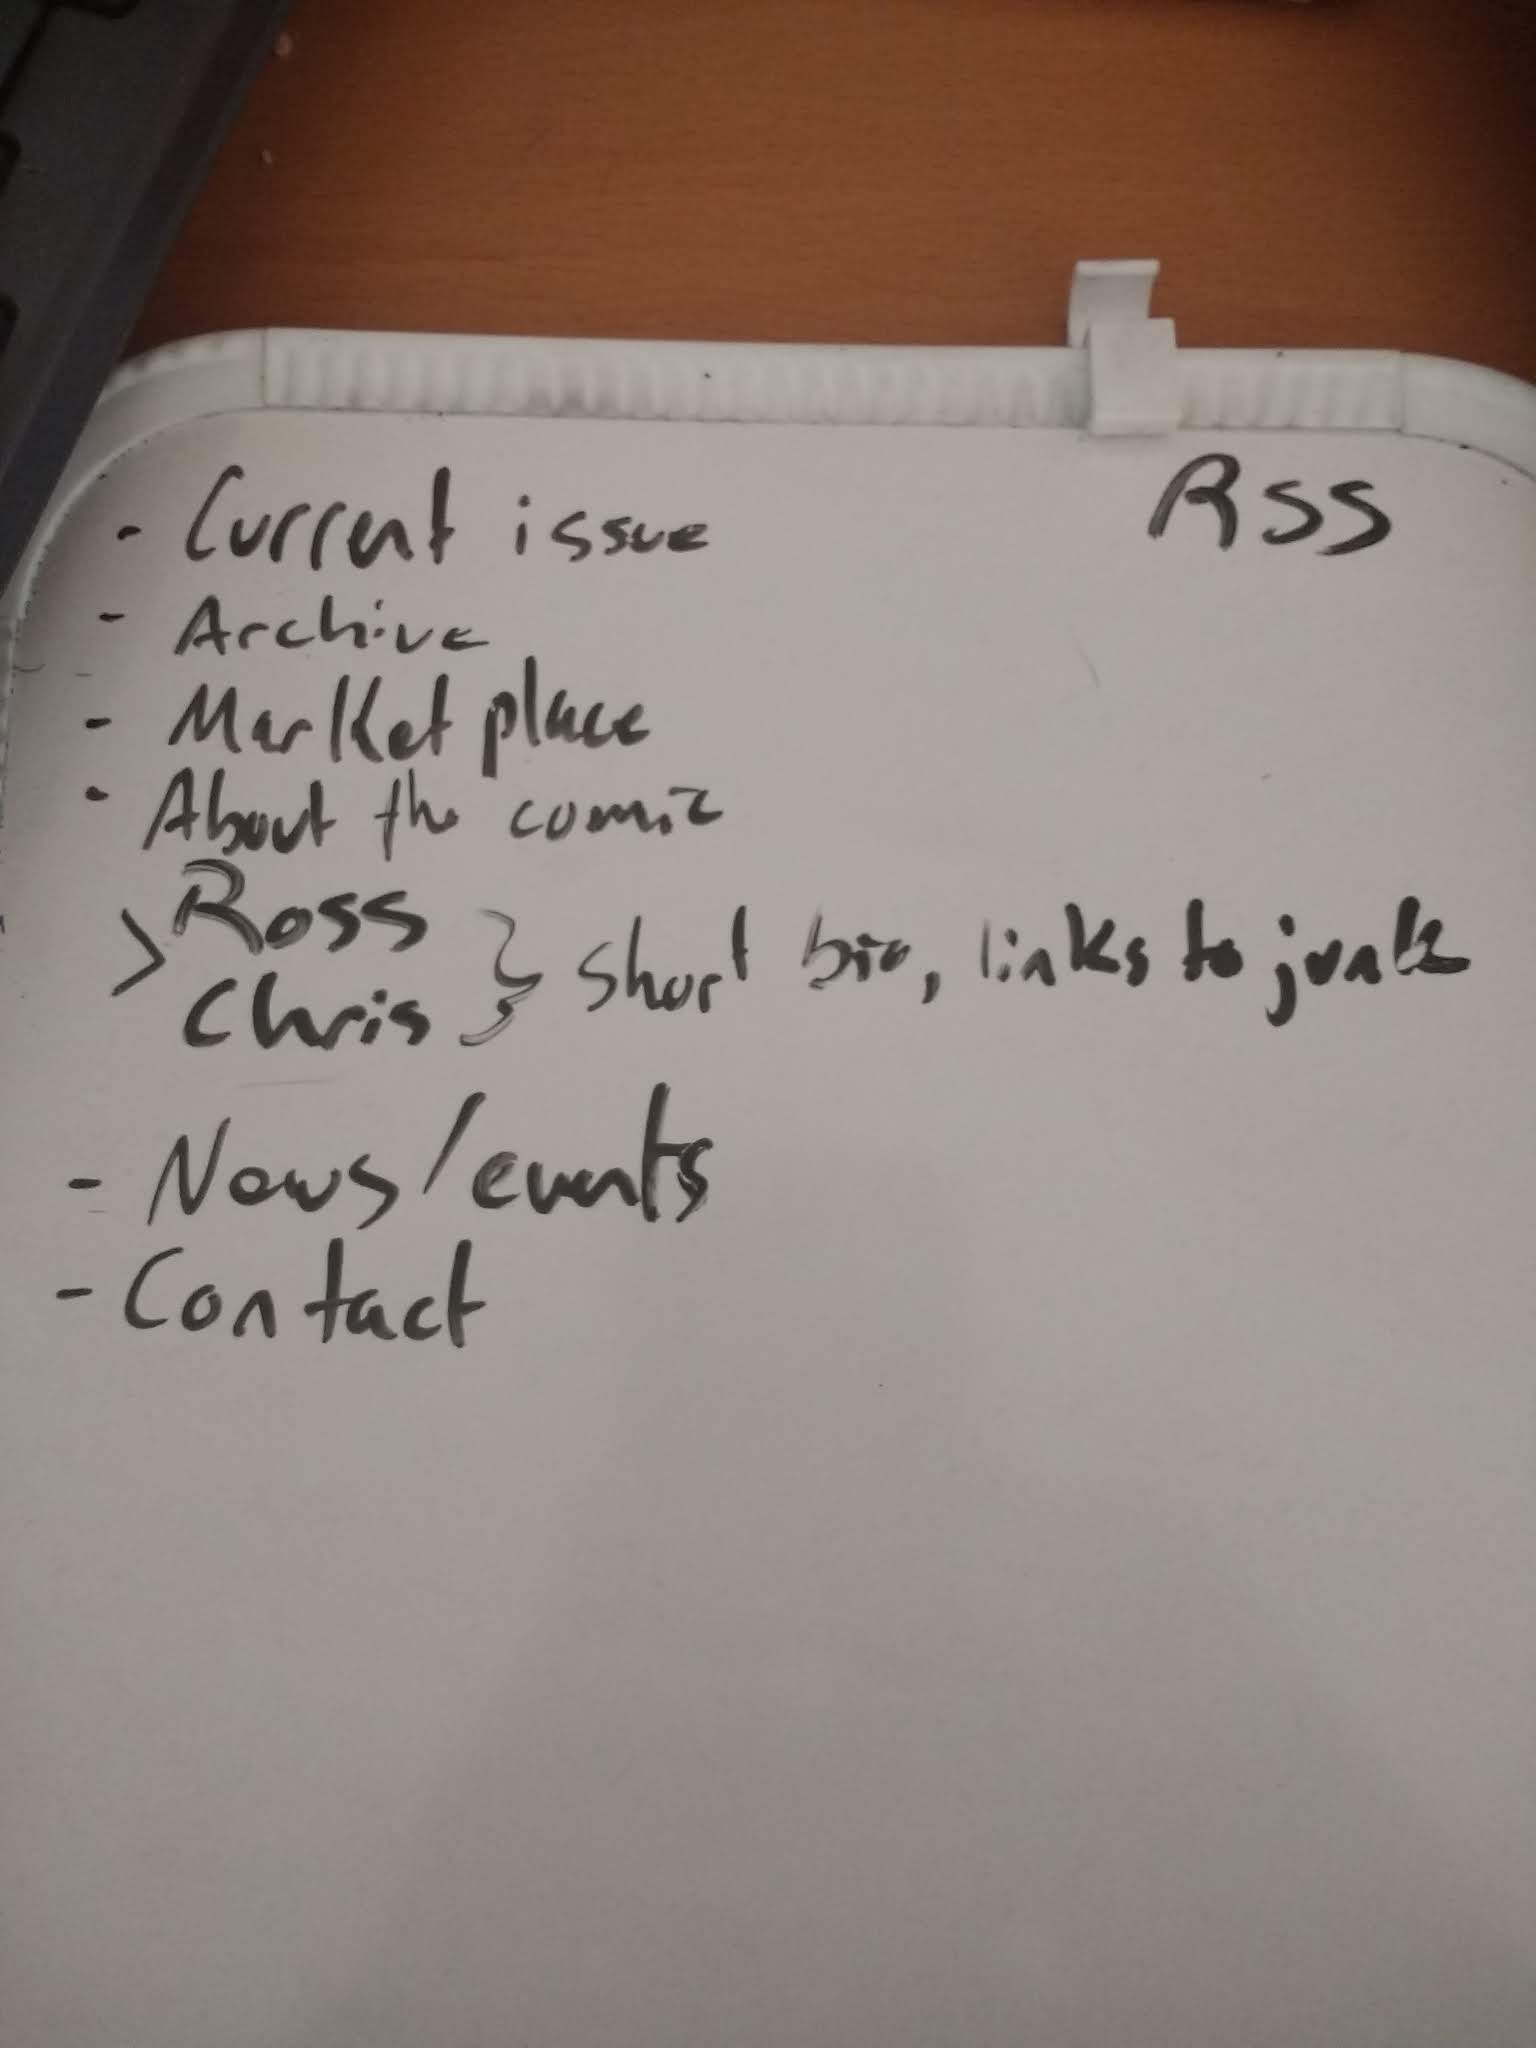 - Current issue
RSS
- Archive
- Marketplace
- About the comic
> Ross
Chris } short bio, links to junk
- News/events
- Contact